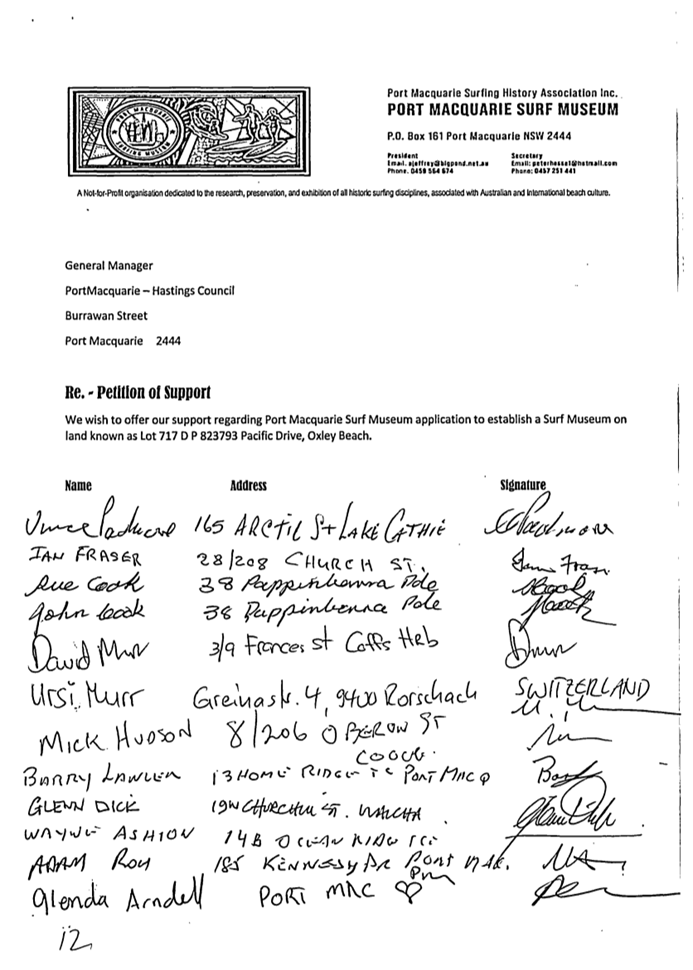 Port Macquarie Surfing History Association Inc.
PORT MACQUARIE SURF MUSEUM
P.O. Box 161 Port Macquarie NSW 2444
President Secretary
Email. ajeffrey@bigpond.net.au Email: peterhassal@hotmail.com
Phone. 0458 564 674 Phone: 0457 251 441
A Not-for-Profit organisation dedicated to the research, preservation, and exhibition of all historic surfing disciplines, associated with Australian and International beach culture.
General Manager
PortMacquarie – Hastings Council
Burrawan Street
Port Macquarie 2444
Re. - Petition of Support
We wish to offer our support regarding Port Macquarie Surf Museum application to establish a Surf Museum on
land known as Lot 717 D P 823793 Pacific Drive, Oxley Beach.
Name Address Signature
Vince 165 ARCTIC St LAKE CATHIE
IAN FRASER 28/208 CHURCH ST.
Sue Cook 38 Pappinbarra Pde
John Cook 38 Pappinbarra Pde
David Murr 3/9 Frances St Coffs Harb
Ursi Murr Greinastr. 4, 9400 Rorschach SWITZERLAND
MICK HUDSON 8/206 OBERON ST
COOGE.
BARRY LAWLER 13 HOME RIDGE TC PORT MACQ
GLENN DICK 19W CHURCHILL ST. WALCHA
WAYNE ASHTON 14B OCEAN RIDGE TCE
ADAM ROH 185 KENNEDY DR PORT MAC.
Glenda Arndell PORT MAC
12